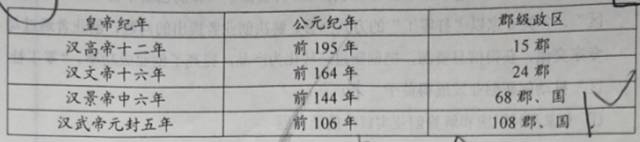 皇帝纪年 公元纪年 郡级政区
汉高帝十二年 前 195 年 15 郡
汉文帝十六年 前 164 年 24 郡
汉景帝中六年 前 144 年 68 郡、国
汉武帝元封五年 前 106 年 108 郡、国